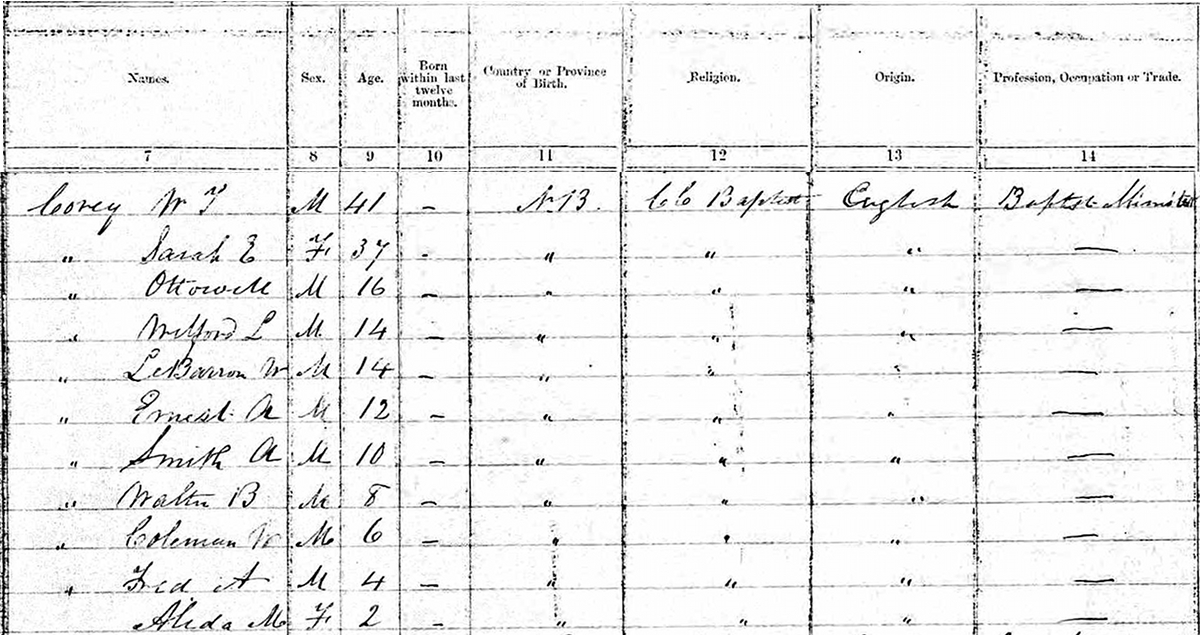 Names. Sex. Age. Born within last twelve months. Country or Province of Birth. Religion. Origin. Profession, Occupation or Trade.
7 8 9 10 11 12 13 14
Corey W T M 41 – N.B. C C Baptist English Baptist Minister
" Sarah E F 37 - " " " —
" Ottowell M 16 – " " " —
" Wilford L M 14 – " " " —
" LeBarron W M 14 – " " " —
" Ernest A M 12 – " " " —
" Smith A M 10 – " " " —
" Walter B M 8 – " " " —
" Coleman W M 6 – " " " —
" Fred A M 4 – " " " —
Alida M F 2 – " " " —